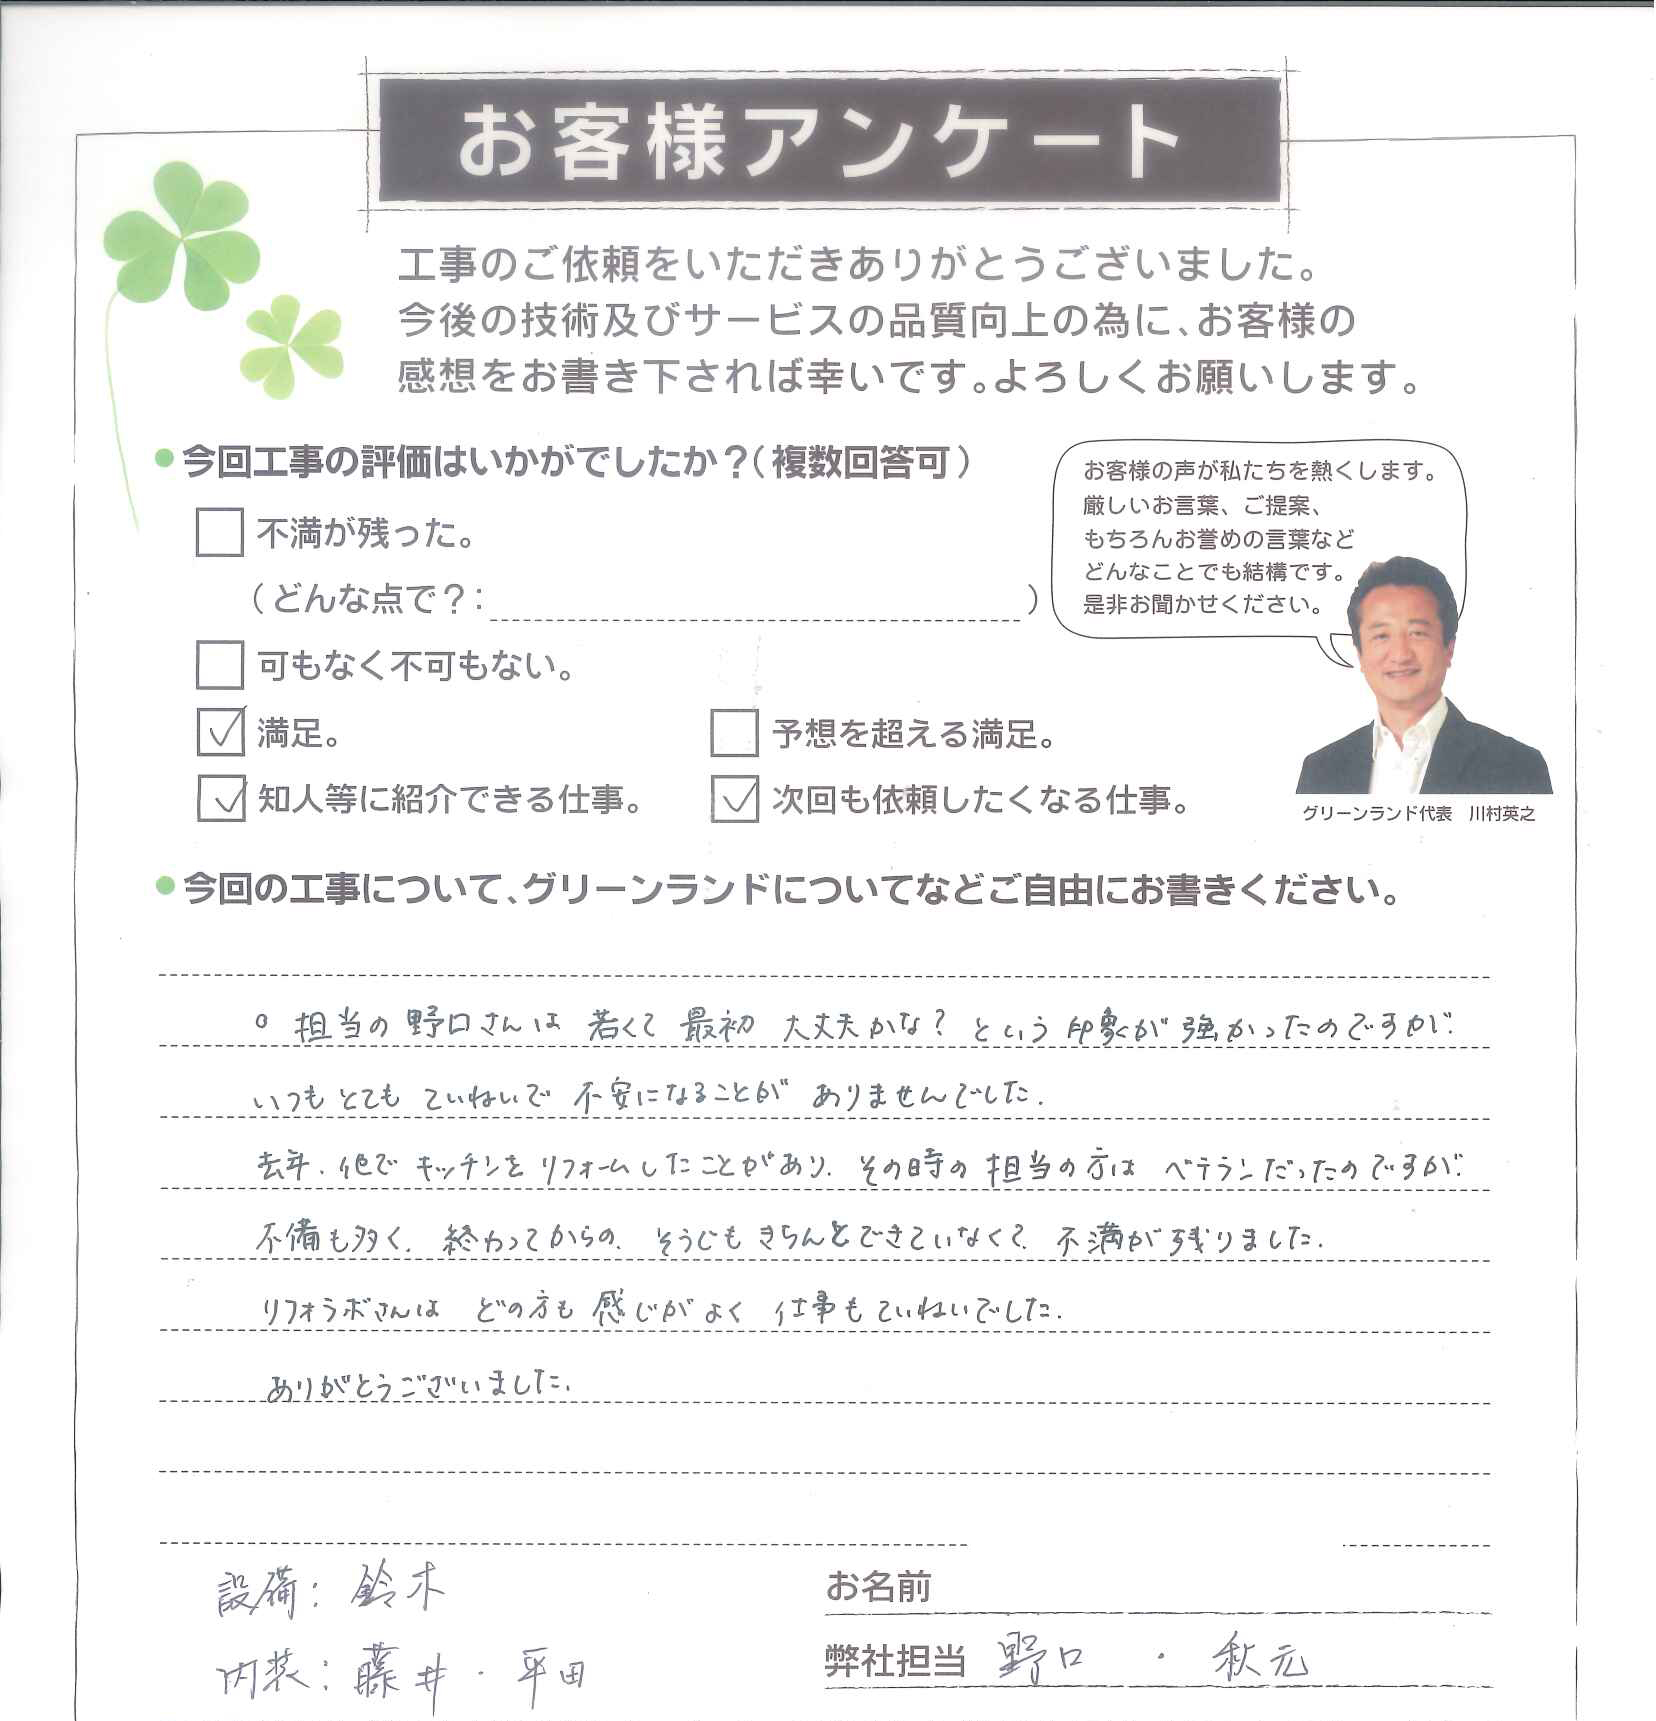 お客様アンケート
工事のご依頼をいただきありがとうございました。
今後の技術及びサービスの品質向上の為に、お客様の
感想をお書き下されば幸いです。よろしくお願いします。
●今回工事の評価はいかがでしたか？（複数回答可）
不満が残った。
（どんな点で？：　　　）
可もなく不可もない。
満足。
予想を超える満足。
知人等に紹介できる仕事。
次回も依頼したくなる仕事。
お客様の声が私たちを熱くします。
厳しいお言葉、ご提案、
もちろんお誉めの言葉など
どんなことでも結構です。
是非お聞かせください。
グリーンランド代表　川村英之
●今回の工事について、グリーンランドについてなどご自由にお書きください。
○ 担当の野口さんは 若くて 最初 大丈夫かな？ という 印象が 強かったのですが、
いつも とても ていねいで 不安になることが ありませんでした。
去年、他で キッチンを リフォームしたことがあり、その時の 担当の方は ベテランだったのですが、
不備も多く、終わってからの、そうじも きちんとできていなくて、不満が残りました。
リフォラボさんは どの方も 感じがよく 仕事も ていねいでした。
ありがとうございました。
設備：鈴木
内装：藤井・平田
お名前
弊社担当 野口 ・ 秋元